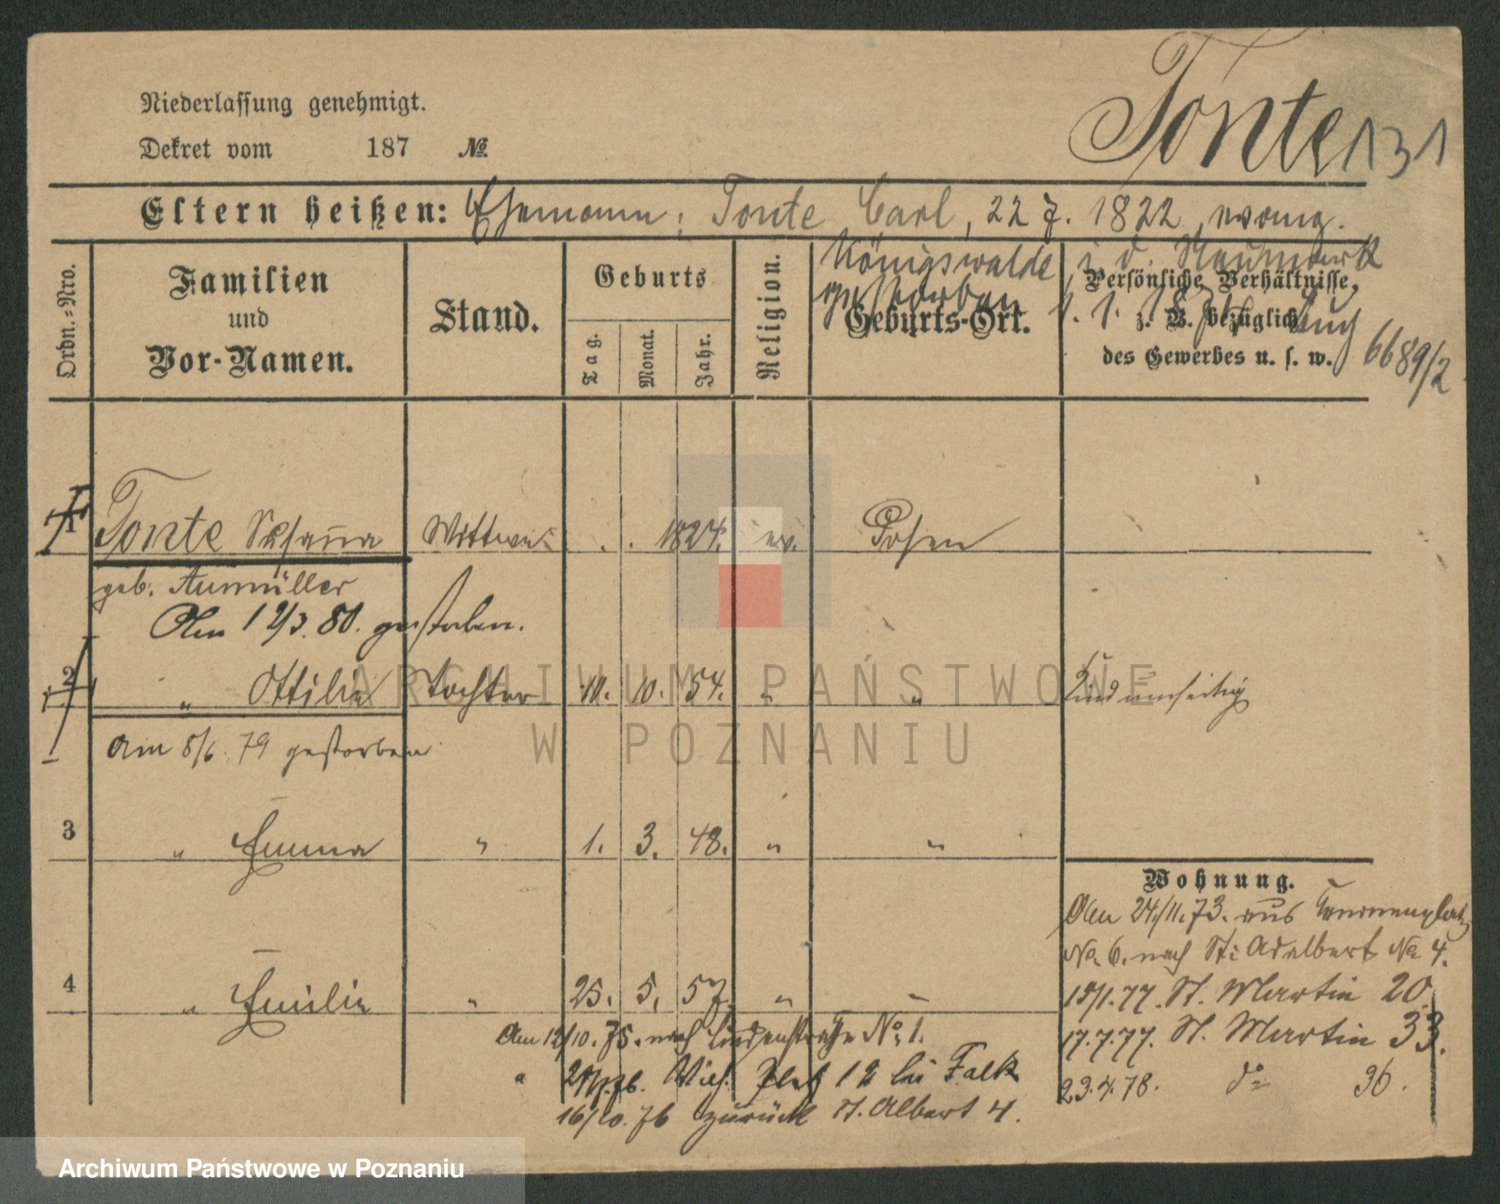 Tonte 131
Niederlassung genehmigt.
Dekret vom 187 №
Eltern heißen: Ehemann: Tonte Carl, 22 7. 1822, evang.
Königswalde i. d. Neumark
gestorben 1. 1.
6689/2
Ordn.-Nro.
Familien
und
Vor-Namen.
Stand.
Geburts
Tag.
Monat.
Jahr.
Religion.
Geburts-Ort.
Persönliche Verhältnisse,
z. B. bezüglich
des Gewerbes u. s. w.
1 Tonte Susanna Wittwe . . 1824. ev. Posen
geb. Aumüller
Am 12/3. 80. gestorben.
2 " Ottilie Tochter 10. 54. " " Kind umseitig
Am 8/6. 79 gestorben
3 " Emma " 1. 3. 48. " "
4 " Emilie " 25. 5. 57. " "
Wohnung.
Am 24/11. 73. aus
No. 6. nach St: Adalbert No 4.
19/1. 77. St. Martin 20.
17.7.77. St. Martin 33.
23.4.78. do 36.
Am 12/10. 75. nach Lindenstraße No. 1.
" Wilh. Platz 12 bei Falk
16/10. 76 zurück St. Albert 4.
ARCHIWUM PAŃSTWOWE
W POZNANIU
Archiwum Państwowe w Poznaniu